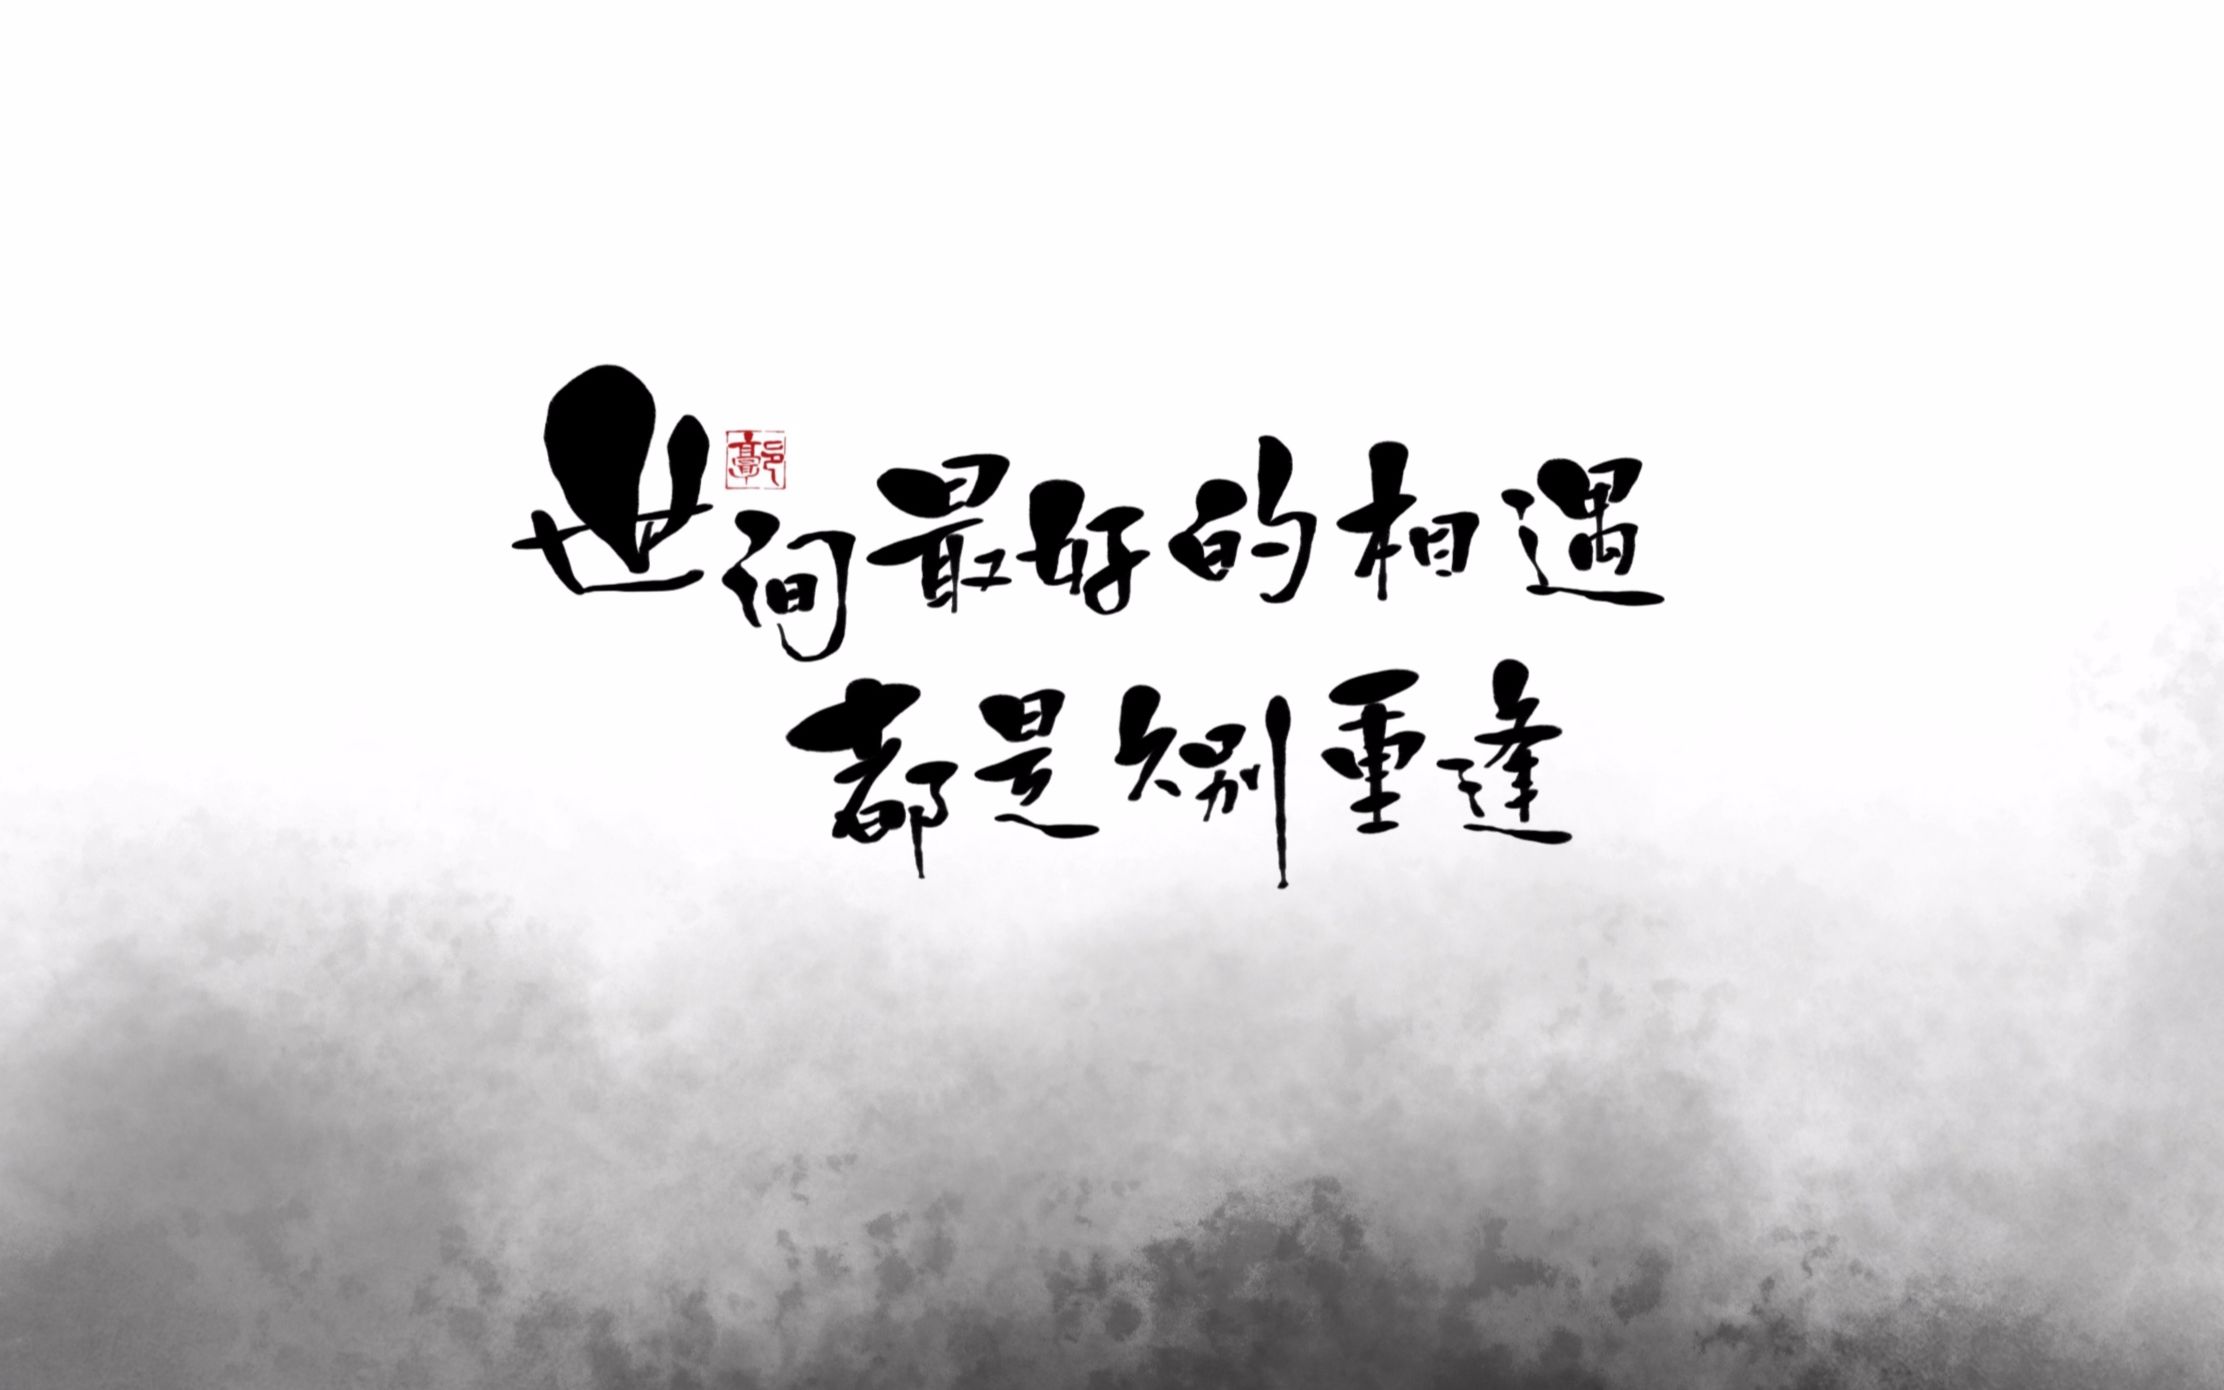 世间最好的相遇
都是久别重逢
郭